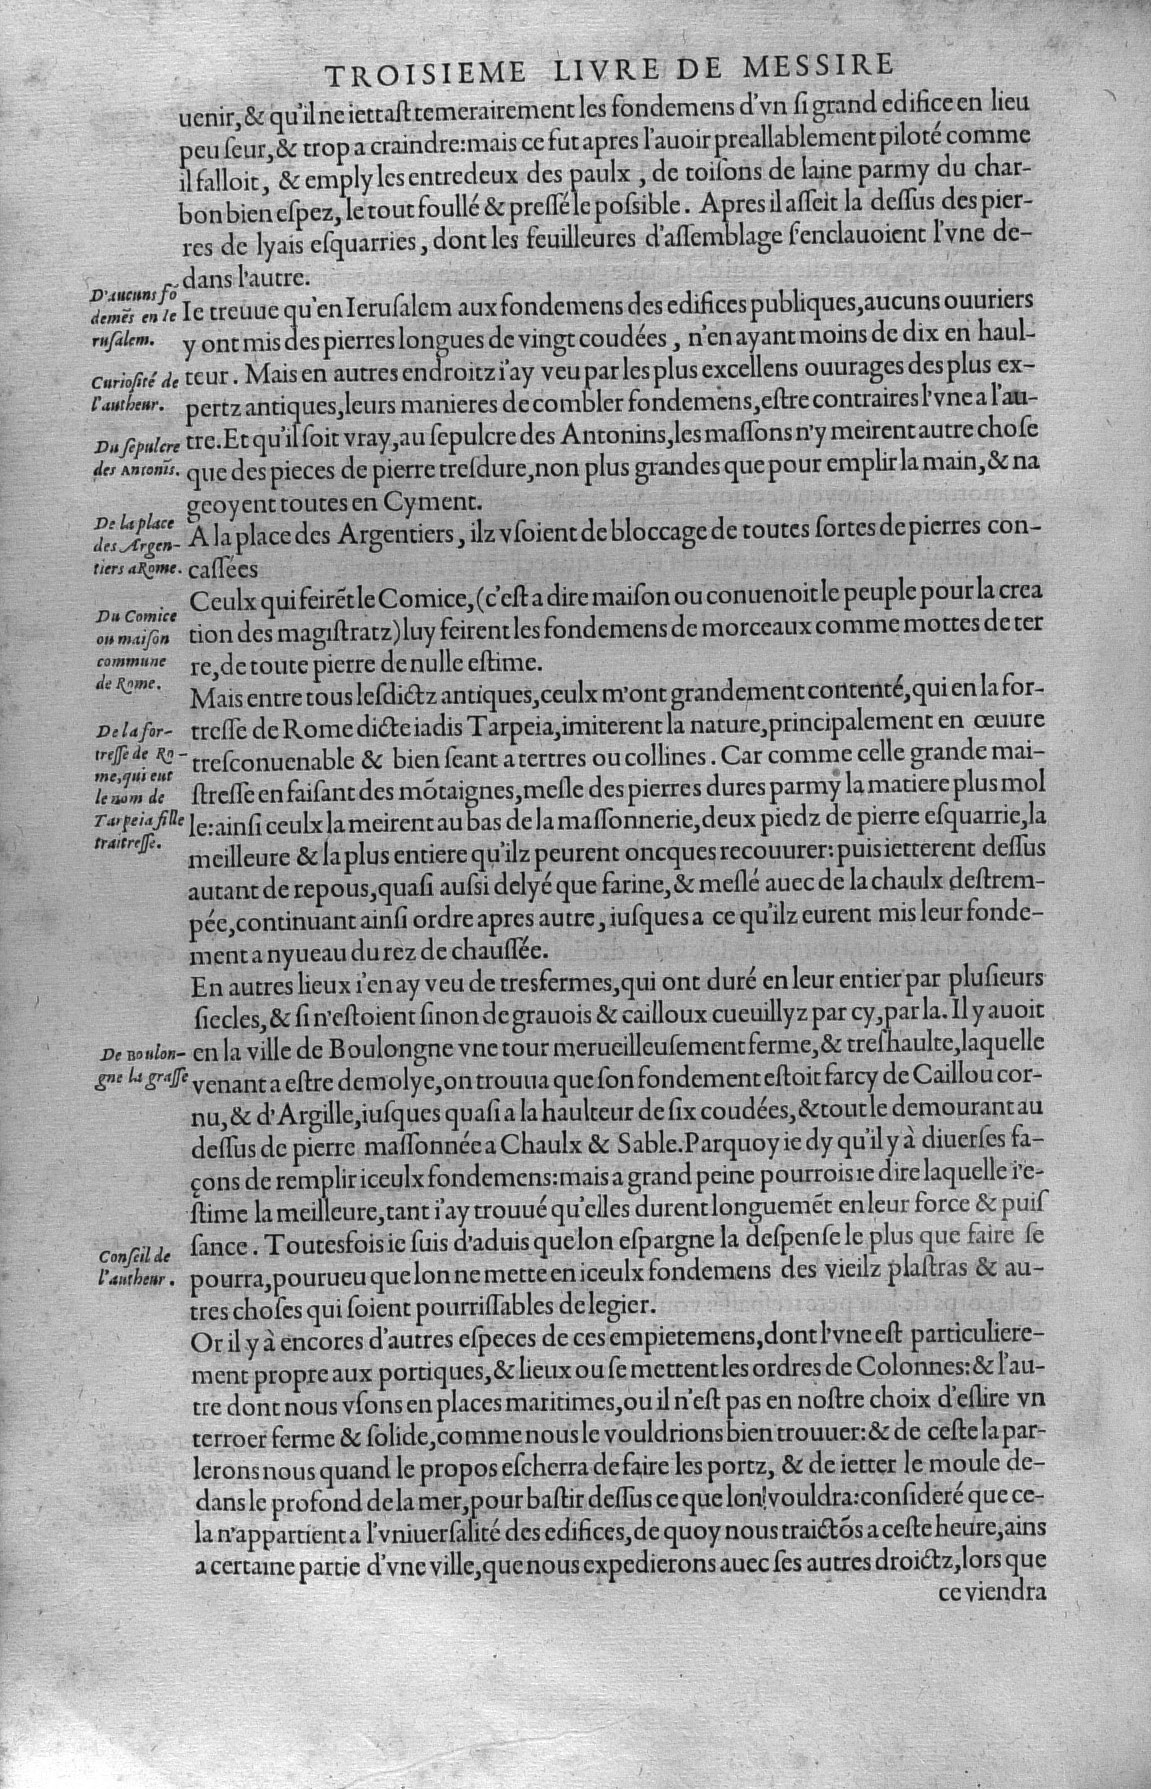 TROISIEME LIVRE DE MESSIRE
uenir, & qu'il ne iettaſt temerairement les fondemens d'vn ſi grand edifice en lieu
peu ſeur, & trop a craindre: mais ce fut apres l'auoir preallablement piloté comme
il falloit, & emply les entredeux des paulx, de toiſons de laine parmy du char-
bon bien eſpez, le tout foullé & preſſé le poſsible. Apres il aſſeit la deſſus des pier-
res de lyais eſquarries, dont les feuilleures d'aſſemblage ſ'enclauoient l'vne de-
dans l'autre.
D'aucuns fõ
demẽs en Ie
ruſalem.
Ie treuue qu'en Ieruſalem aux fondemens des edifices publiques, aucuns ouuriers
y ont mis des pierres longues de vingt coudées, n'en ayant moins de dix en haul-
Curioſité de
l'autheur.
teur. Mais en autres endroitz i'ay veu par les plus excellens ouurages des plus ex-
pertz antiques, leurs manieres de combler fondemens, eſtre contraires l'vne a l'au-
Du ſepulcre
des Antonĩs.
tre. Et qu'il ſoit vray, au ſepulcre des Antonins, les maſſons n'y meirent autre choſe
que des pieces de pierre treſdure, non plus grandes que pour emplir la main, & na
geoyent toutes en Cyment.
De la place
des Argen-
tiers a Rome.
A la place des Argentiers, ilz vſoient de bloccage de toutes ſortes de pierres con-
caſſées
Du Comice
ou maiſon
commune
de Rome.
Ceulx qui feirẽt le Comice, (c'eſt a dire maiſon ou conuenoit le peuple pour la crea
tion des magiſtratz) luy feirent les fondemens de morceaux comme mottes de ter
re, de toute pierre de nulle eſtime.
Mais entre tous leſdictz antiques, ceulx m'ont grandement contenté, qui en la for-
De la for-
treſſe de Ro-
me, qui eut
le nom de
Tarpeia fille
traitreſſe.
treſſe de Rome dicte iadis Tarpeia, imiterent la nature, principalement en œuure
treſconuenable & bien ſeant a tertres ou collines. Car comme celle grande mai-
ſtreſſe en faiſant des mõtaignes, meſle des pierres dures parmy la matiere plus mol
le: ainſi ceulx la meirent au bas de la maſſonnerie, deux piedz de pierre eſquarrie, la
meilleure & la plus entiere qu'ilz peurent oncques recouurer: puis ietterent deſſus
autant de repous, quaſi auſsi delyé que farine, & meſlé auec de la chaulx deſtrem-
pée, continuant ainſi ordre apres autre, iuſques a ce qu'ilz eurent mis leur fonde-
ment a nyueau du rez de chauſſée.
En autres lieux i'en ay veu de tresfermes, qui ont duré en leur entier par pluſieurs
ſiecles, & ſi n'eſtoient ſinon de grauois & cailloux cueuillyz par cy, par la. Il y auoit
De Boulon-
gne la graſſe
en la ville de Boulongne vne tour merueilleuſement ferme, & treſhaulte, laquelle
venant a eſtre demolye, on trouua que ſon fondement eſtoit farcy de Caillou cor-
nu, & d'Argille, iuſques quaſi a la haulteur de ſix coudées, & tout le demourant au
deſſus de pierre maſſonnée a Chaulx & Sable. Parquoy ie dy qu'il y à diuerſes fa-
çons de remplir iceulx fondemens: mais a grand peine pourrois ie dire laquelle i'e-
ſtime la meilleure, tant i'ay trouué qu'elles durent longuemẽt en leur force & puiſ
Conſeil de
l'autheur.
ſance. Toutesfois ie ſuis d'aduis que lon eſpargne la deſpenſe le plus que faire ſe
pourra, pourueu que lon ne mette en iceulx fondemens des vieilz plaſtras & au-
tres choſes qui ſoient pourriſſables de legier.
Or il y à encores d'autres eſpeces de ces empietemens, dont l'vne eſt particuliere-
ment propre aux portiques, & lieux ou ſe mettent les ordres de Colonnes: & l'au-
tre dont nous vſons en places maritimes, ou il n'eſt pas en noſtre choix d'eſlire vn
terroer ferme & ſolide, comme nous le vouldrions bien trouuer: & de ceſte la par-
lerons nous quand le propos eſcherra de faire les portz, & de ietter le moule de-
dans le profond de la mer, pour baſtir deſſus ce que lon vouldra: conſideré que ce-
la n'appartient a l'vniuerſalité des edifices, de quoy nous traictõs a ceſte heure, ains
a certaine partie d'vne ville, que nous expedierons auec ſes autres droictz, lors que
ce viendra